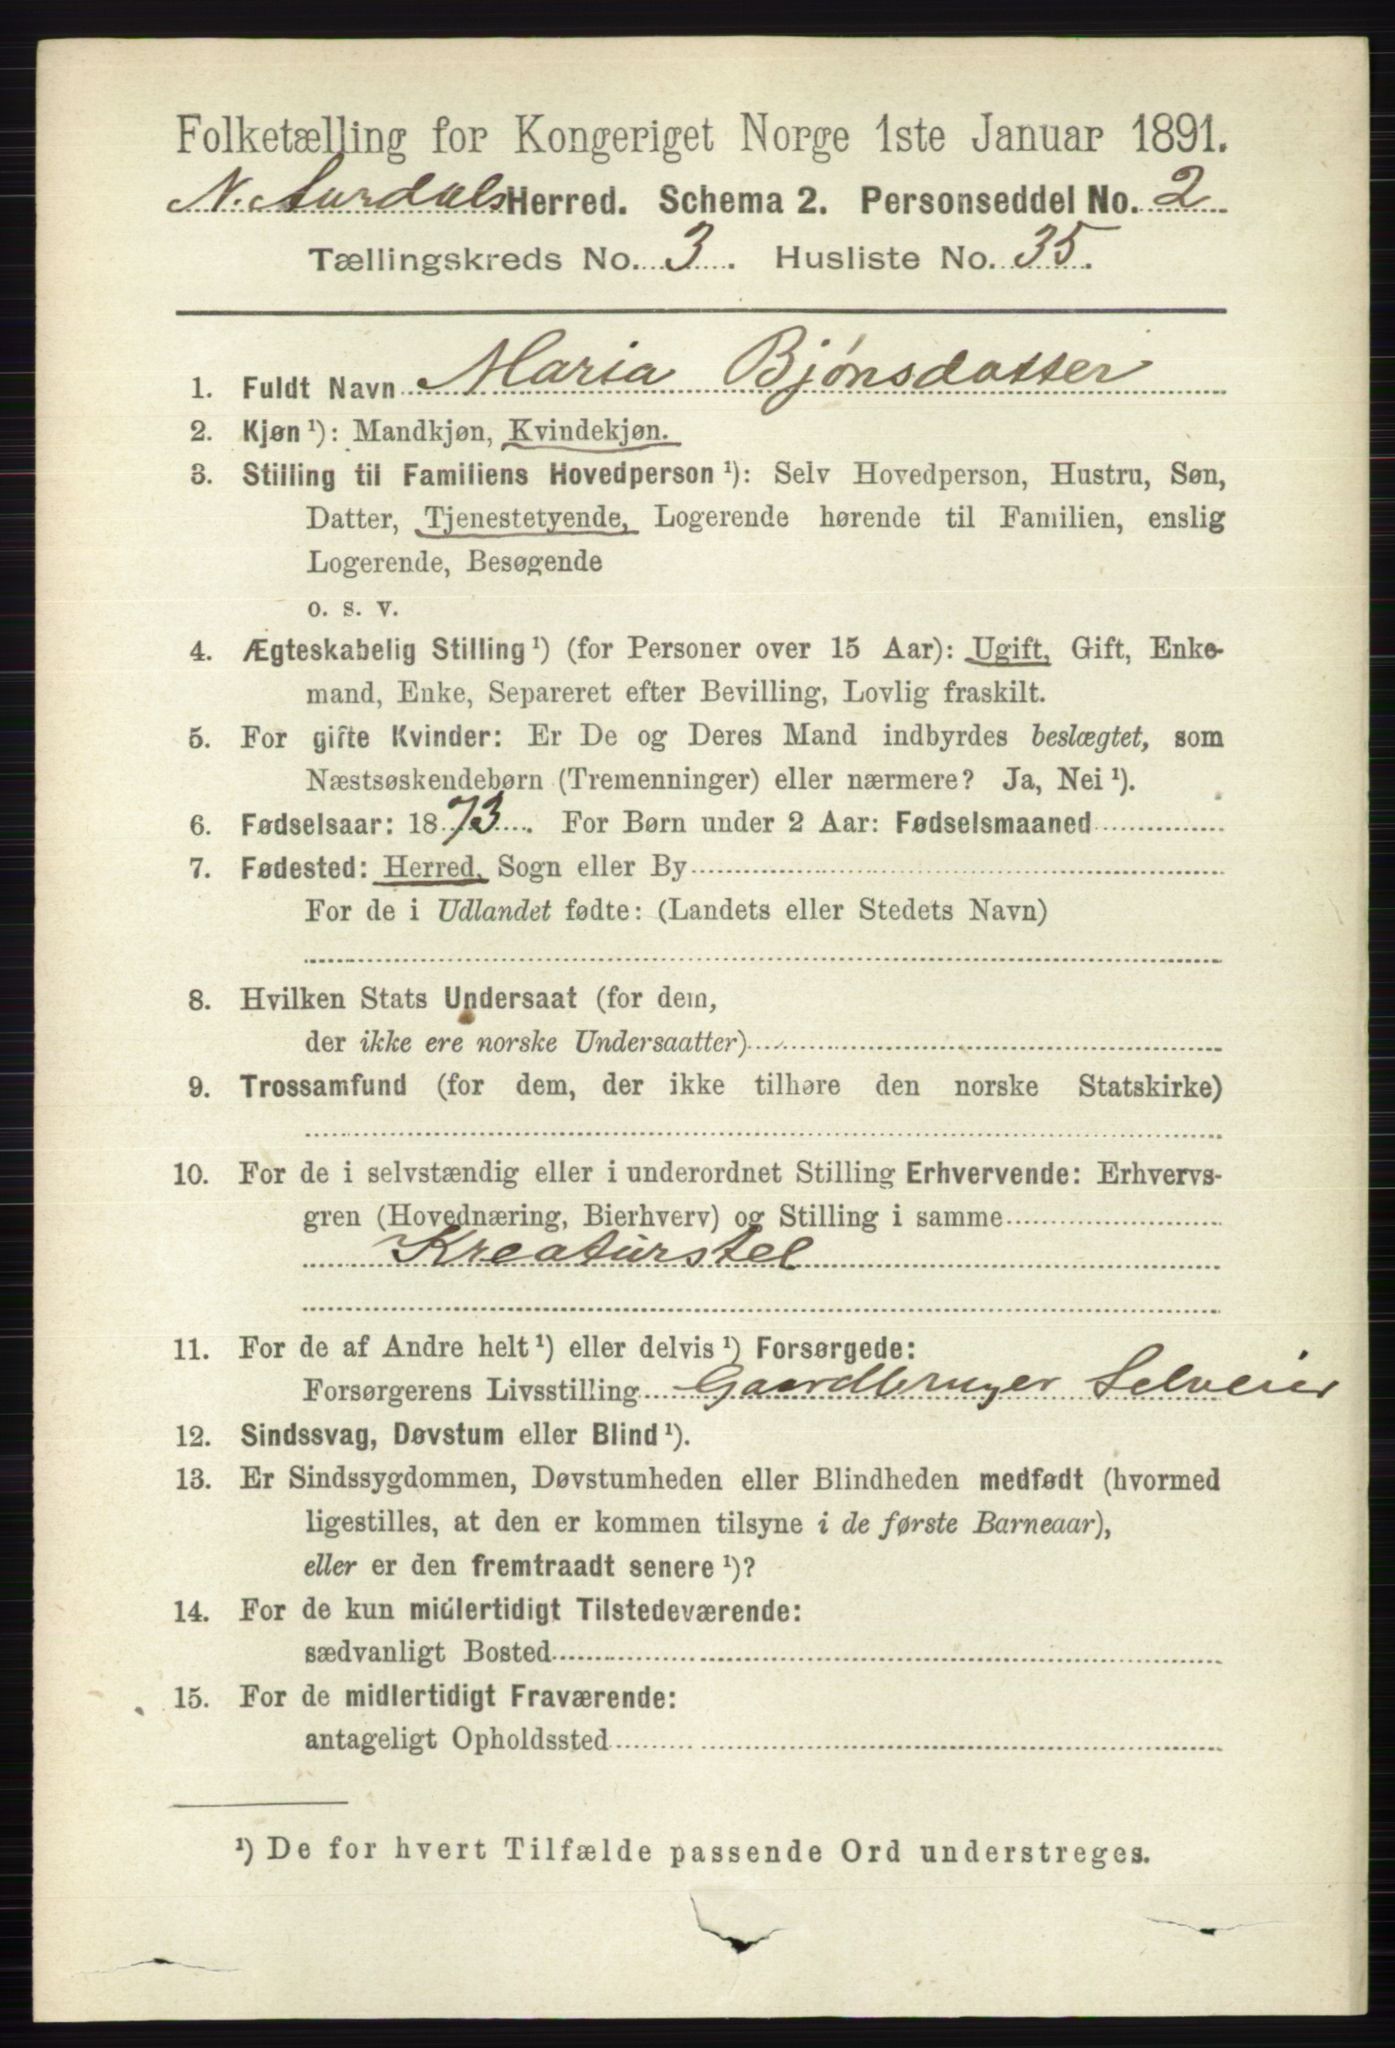 Folketælling for Kongeriget Norge 1ste Januar 1891.
N. Aurdals Herred. Schema 2. Personseddel No. 2
Tællingskreds No. 3. Husliste No. 35.
1. Fuldt Navn Maria Bjønsdatter
2. Kjøn ¹): Mandkjøn, Kvindekjøn.
3. Stilling til Familiens Hovedperson ¹): Selv Hovedperson, Hustru, Søn,
Datter, Tjenestetyende, Logerende hørende til Familien, enslig
Logerende, Besøgende
o. s. v.
4. Ægteskabelig Stilling ¹) (for Personer over 15 Aar): Ugift, Gift, Enke-
mand, Enke, Separeret efter Bevilling, Lovlig fraskilt.
5. For gifte Kvinder: Er De og Deres Mand indbyrdes beslægtet, som
Næstsøskendebørn (Tremenninger) eller nærmere? Ja, Nei ¹).
6. Fødselsaar: 1873. For Børn under 2 Aar: Fødselsmaaned
7. Fødested: Herred, Sogn eller By
For de i Udlandet fødte: (Landets eller Stedets Navn)
8. Hvilken Stats Undersaat (for dem,
der ikke ere norske Undersaatter)
9. Trossamfund (for dem, der ikke tilhøre den norske Statskirke)
10. For de i selvstændig eller i underordnet Stilling Erhvervende: Erhvervs-
gren (Hovednæring, Bierhverv) og Stilling i samme
Kreaturstel
11. For de af Andre helt ¹) eller delvis ¹) Forsørgede:
Forsørgerens Livsstilling Gaardbruger Selveier
12. Sindssvag, Døvstum eller Blind ¹).
13. Er Sindssygdommen, Døvstumheden eller Blindheden medfødt (hvormed
ligestilles, at den er kommen tilsyne i de første Barneaar),
eller er den fremtraadt senere ¹)?
14. For de kun midlertidigt Tilstedeværende:
sædvanligt Bosted
15. For de midlertidigt Fraværende:
antageligt Opholdssted
¹) De for hvert Tilfælde passende Ord understreges.